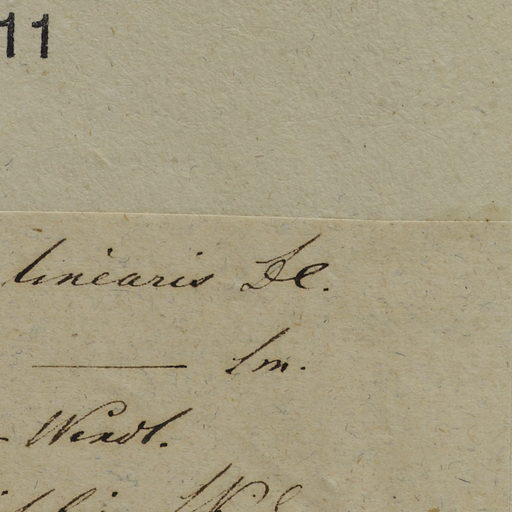 11
linearis DC.
——— Sm.
- Wendl.